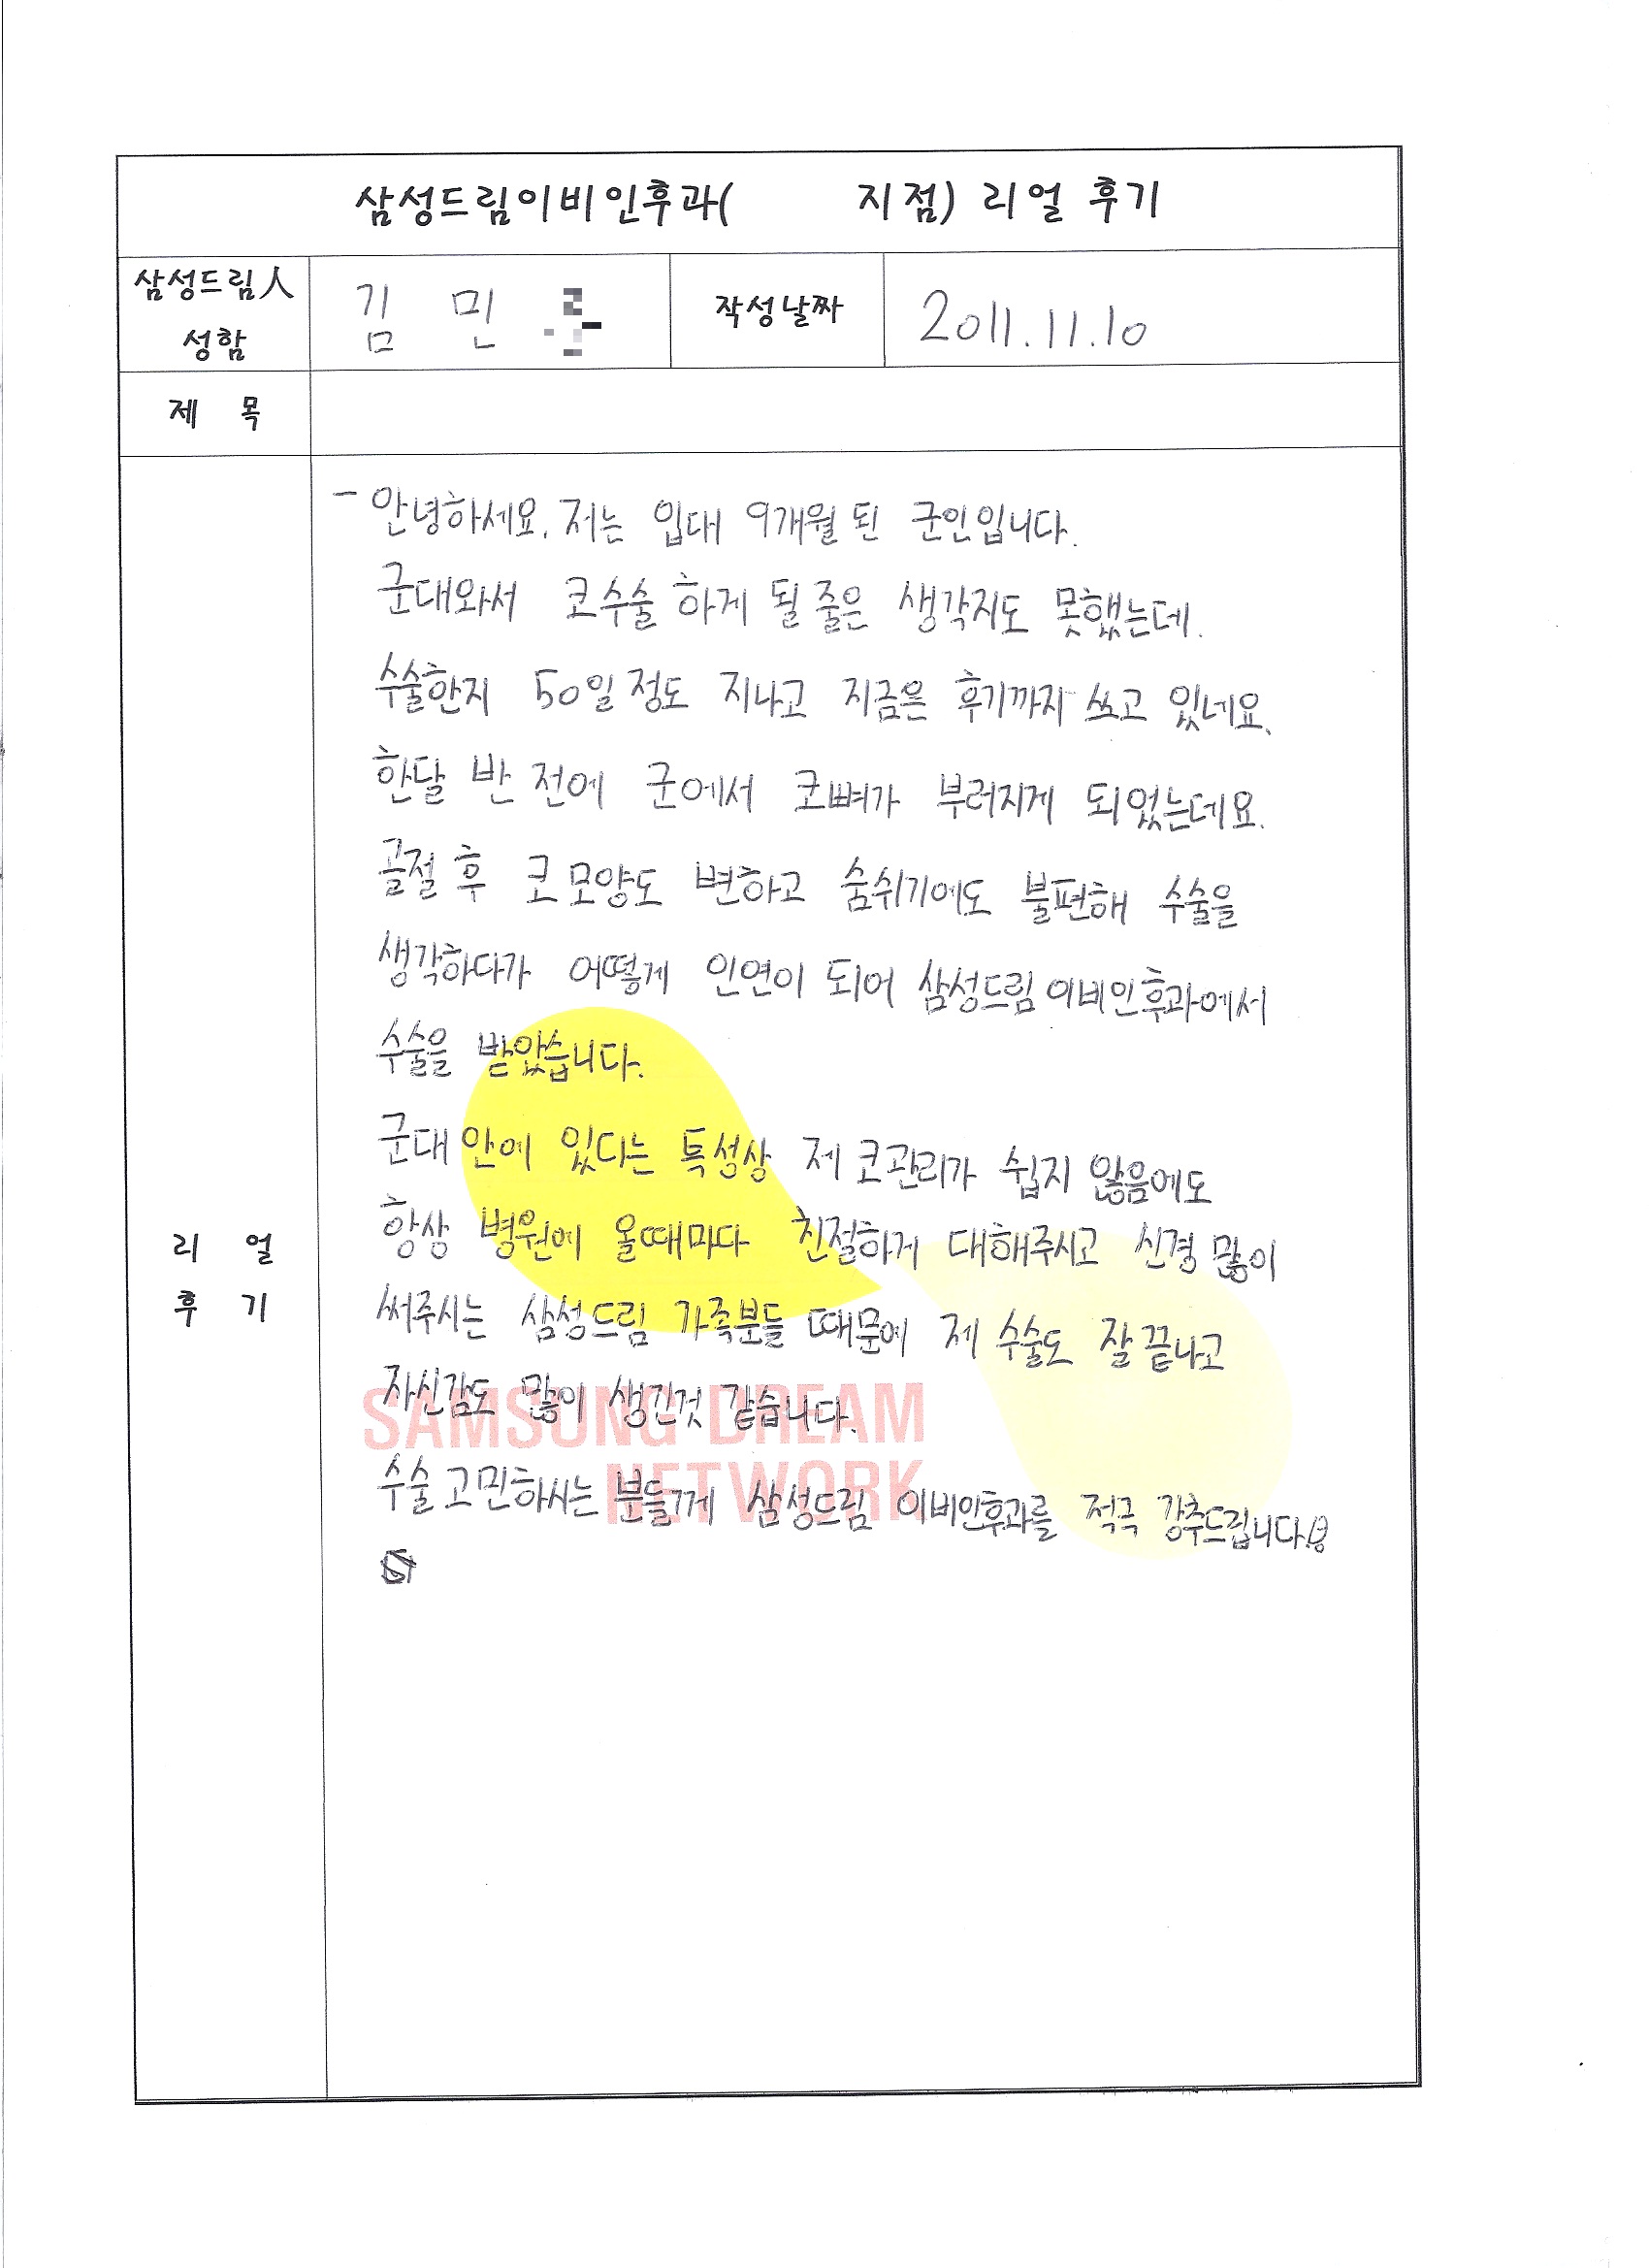 삼성드림이비인후과(        지점) 리얼 후기
삼성드림人
성함
김 민
작성날짜
2011.11.10
제 목
- 안녕하세요. 저는 입대 9개월 된 군인입니다.
군대와서 코수술 하게 될 줄은 생각지도 못했는데.
수술한지 50일 정도 지나고 지금은 후기까지 쓰고 있네요.
한달 반 전에 군에서 코뼈가 부러지게 되었는데요.
골절 후 코 모양도 변하고 숨쉬기에도 불편해 수술을
생각하다가 어떻게 인연이 되어 삼성드림이비인후과에서
수술을 받았습니다.
군대 안에 있다는 특성상 제 코관리가 쉽지 않음에도
항상 병원에 올때마다 친절하게 대해주시고 신경 많이
써주시는 삼성드림 가족분들 때문에 제 수술도 잘 끝나고
자신감도 많이 생긴것 같습니다.
수술 고민하시는 분들께 삼성드림 이비인후과를 적극 강추드립니다!
리 얼
후 기
SAMSUNG DREAM
NETWORK